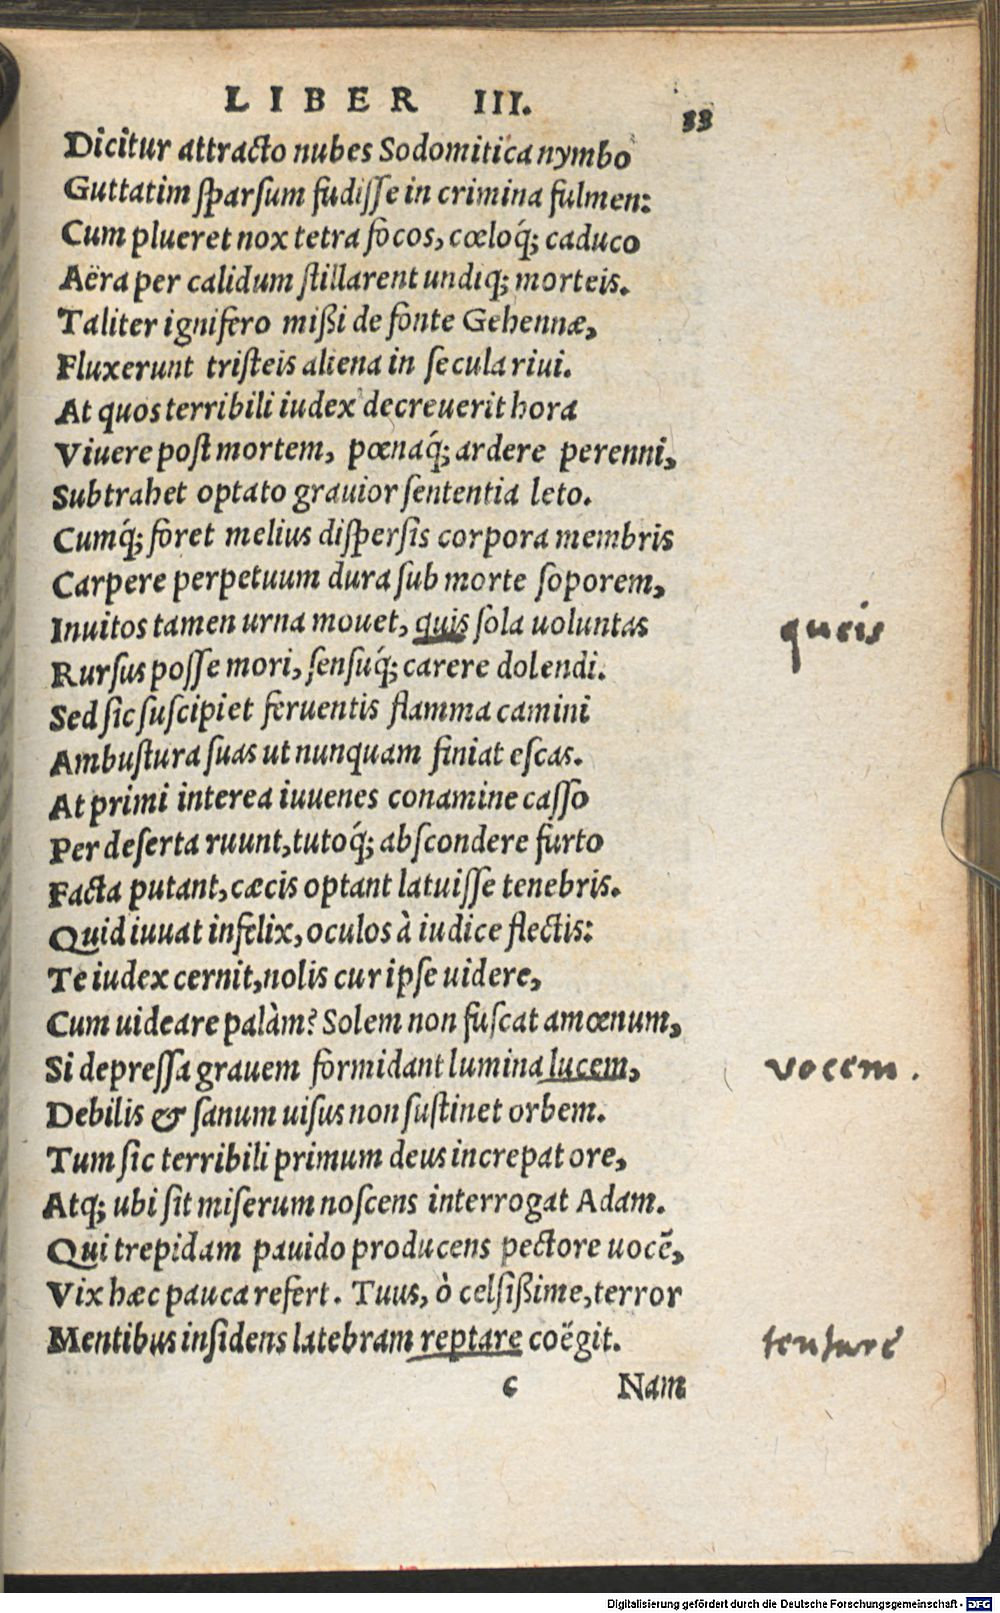 LIBER III. 33
Dicitur attracto nubes Sodomitica nymbo
Guttatim ſparſum fudiſſe in crimina fulmen:
Cum plueret nox tetra focos, cœloq́; caduco
Aëra per calidum ſtillarent undiq; morteis.
Taliter ignifero mißi de fonte Gehennæ,
Fluxerunt triſteis aliena in ſecula riui.
At quos terribili iudex decreuerit hora
Viuere poſt mortem, pœnaq́; ardere perenni,
Subtrahet optato grauior ſententia leto.
Cumq́; foret melius diſperſis corpora membris
Carpere perpetuum dura ſub morte ſoporem,
Inuitos tamen urna mouet, quis ſola uoluntas queis
Rurſus poſſe mori, ſenſuq́; carere dolendi.
Sed ſic ſuſcipiet feruentis flamma camini
Ambuſtura ſuas ut nunquam finiat eſcas.
At primi interea iuuenes conamine caſſo
Per deſerta ruunt, tutoq́; abſcondere furto
Facta putant, cæcis optant latuiſſe tenebris.
Quid iuuat infelix, oculos à iudice flectis:
Te iudex cernit, nolis cur ipſe uidere,
Cum uideare palàm? Solem non fuſcat amœnum,
Si depreſſa grauem formidant lumina lucem, vocem.
Debilis & ſanum uiſus non ſuſtinet orbem.
Tum ſic terribili primum deus increpat ore,
Atq; ubi ſit miſerum noſcens interrogat Adam.
Qui trepidam pauido producens pectore uocē,
Vix hæc pauca refert. Tuus, ò celſißime, terror
Mentibus inſidens latebram reptare coëgit. tentare
c Nam
Digitalisierung gefördert durch die Deutsche Forschungsgemeinschaft - DFG